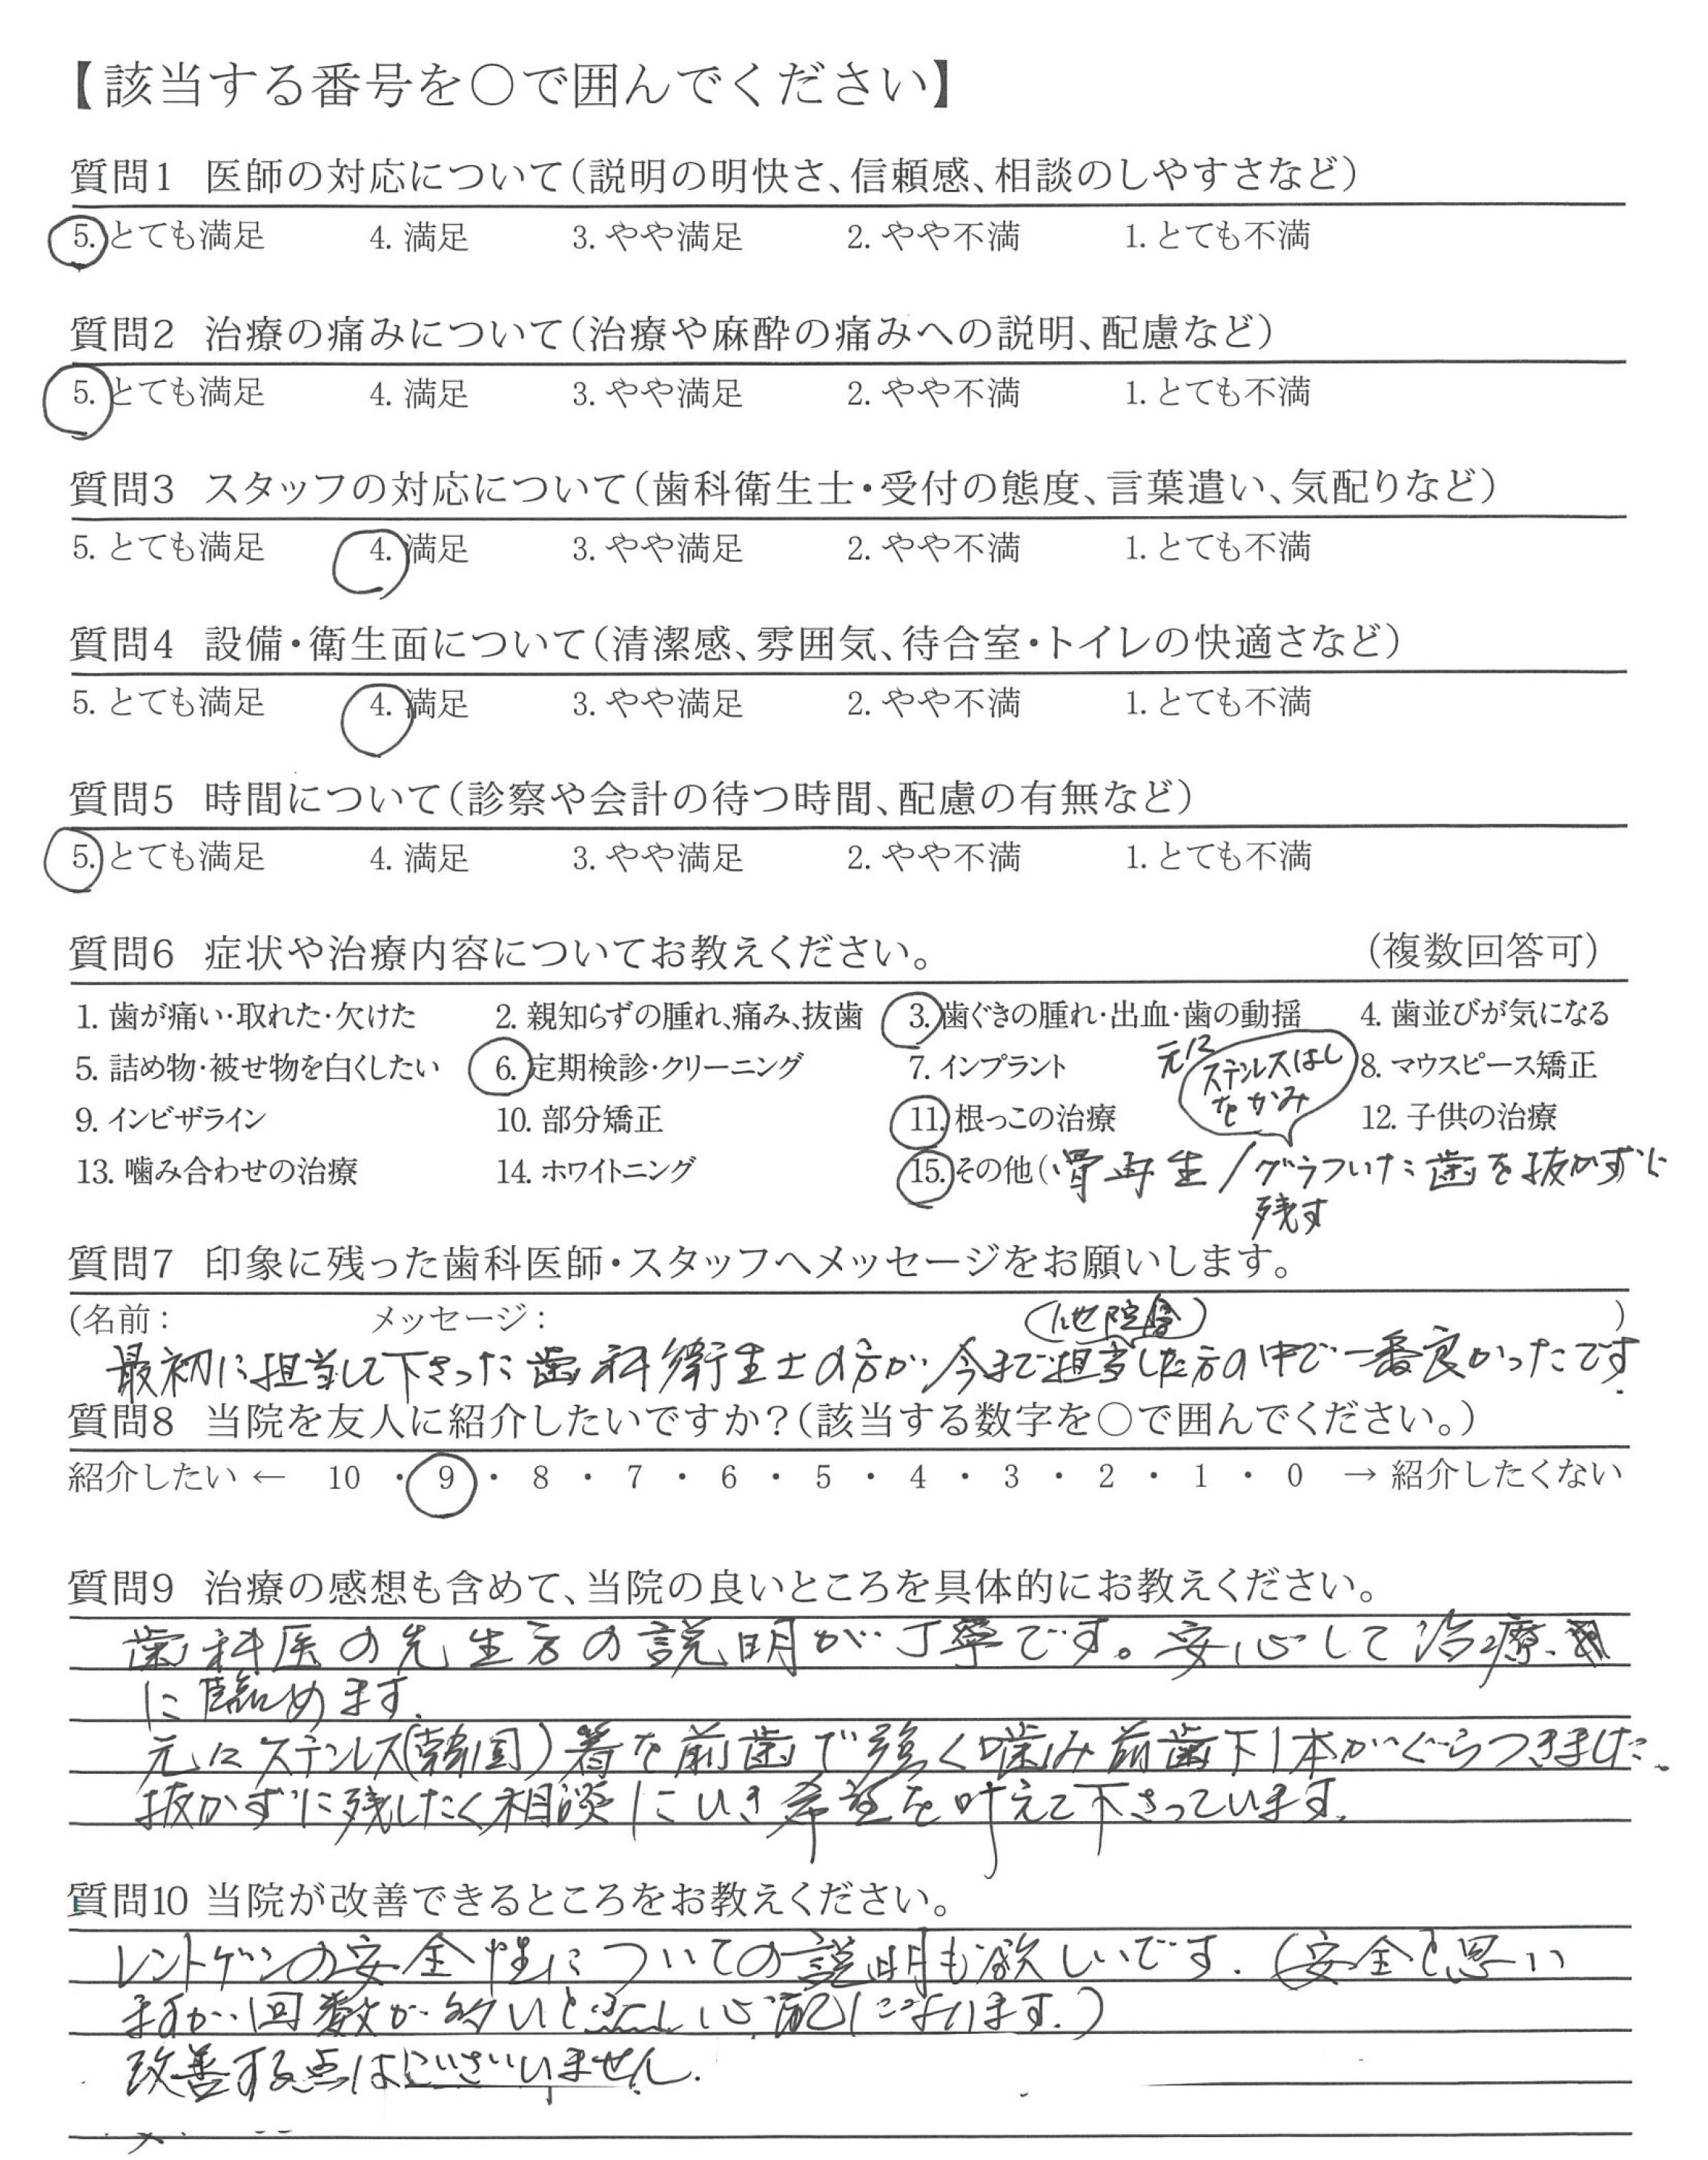 【該当する番号を○で囲んでください】
質問1 医師の対応について(説明の明快さ、信頼感、相談のしやすさなど)
5. とても満足 4. 満足 3. やや満足 2. やや不満 1. とても不満
質問2 治療の痛みについて(治療や麻酔の痛みへの説明、配慮など)
5. とても満足 4. 満足 3. やや満足 2. やや不満 1. とても不満
質問3 スタッフの対応について(歯科衛生士・受付の態度、言葉遣い、気配りなど)
5. とても満足 4. 満足 3. やや満足 2. やや不満 1. とても不満
質問4 設備・衛生面について(清潔感、雰囲気、待合室・トイレの快適さなど)
5. とても満足 4. 満足 3. やや満足 2. やや不満 1. とても不満
質問5 時間について(診察や会計の待つ時間、配慮の有無など)
5. とても満足 4. 満足 3. やや満足 2. やや不満 1. とても不満
質問6 症状や治療内容についてお教えください。 (複数回答可)
1. 歯が痛い・取れた・欠けた 2. 親知らずの腫れ、痛み、抜歯 3. 歯ぐきの腫れ・出血・歯の動揺 4. 歯並びが気になる
5. 詰め物・被せ物を白くしたい 6. 定期検診・クリーニング 7. インプラント 8. マウスピース矯正
元に
ステンレスはし
をかみ
9. インビザライン 10. 部分矯正 11. 根っこの治療 12. 子供の治療
13. 噛み合わせの治療 14. ホワイトニング 15. その他(骨再生/グラついた歯を抜かずに
残す
質問7 印象に残った歯科医師・スタッフへメッセージをお願いします。
(名前: メッセージ: )
(他院含)
最初に担当して下さった歯科衛生士の方が今まで担当した方の中で一番良かったです
質問8 当院を友人に紹介したいですか?(該当する数字を○で囲んでください。)
紹介したい ← 10 ・ 9 ・ 8 ・ 7 ・ 6 ・ 5 ・ 4 ・ 3 ・ 2 ・ 1 ・ 0 → 紹介したくない
質問9 治療の感想も含めて、当院の良いところを具体的にお教えください。
歯科医の先生方の説明が丁寧です。安心して治療
に臨めます.
元にステンレス(韓国)箸を前歯で強く噛み前歯下1本がぐらつきました.
抜かずに残したく相談にいき希望を叶えて下さっています.
質問10 当院が改善できるところをお教えください。
レントゲンの安全性についての説明も欲しいです.(安全と思い
ますが回数が多いと少し心配になります.)
改善する点はございません.